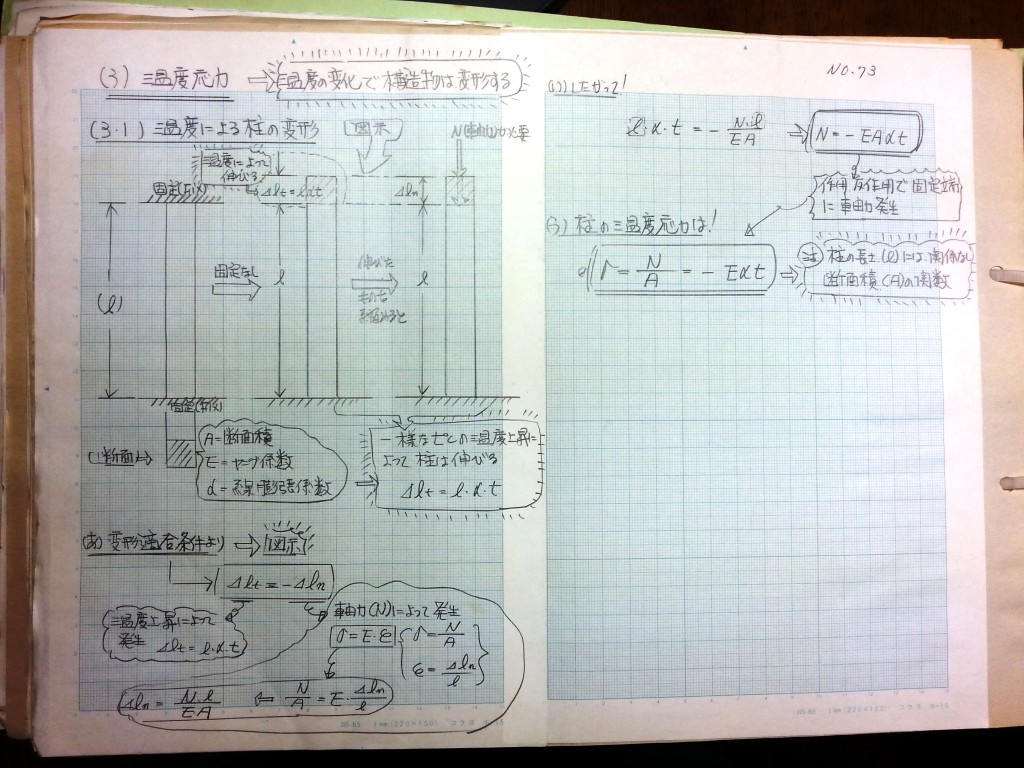 (3) 温度応力 ⇒ 温度の変化で構造物は変形する
(3.1) 温度による柱の変形
図示
N(軸力)が必要
温度によって
伸びる
固定(上)
Δlt=lαt
Δln
固定なし
(l)
l
伸びた
ものを
l
(1)断面⇒
A=断面積
E=ヤング係数
α=線膨張係数
一様なt℃の温度上昇に
よって柱は伸びる
Δlt=l・α・t
(あ) 変形適合条件より ⇒ 図示
Δlt=-Δln
温度上昇によって
発生 Δlt=l・α・t
軸力(N)によって発生
σ=E・ε
σ=N/A
ε=Δln/l
Δln=N・l/EA ⇔ N/A=E・Δln/l
NO.73
(い) したがって!
l・α・t=-N・l/EA ⇒ N=-EAαt
作用反作用で固定端
に軸力発生
(う) 柱の温度応力は!
σ=N/A=-Eαt
⇒ 注 柱の長さ(l)には関係なし
断面積(A)の関数
1mm(220×150) コクヨ
1mm(220×150) コクヨ